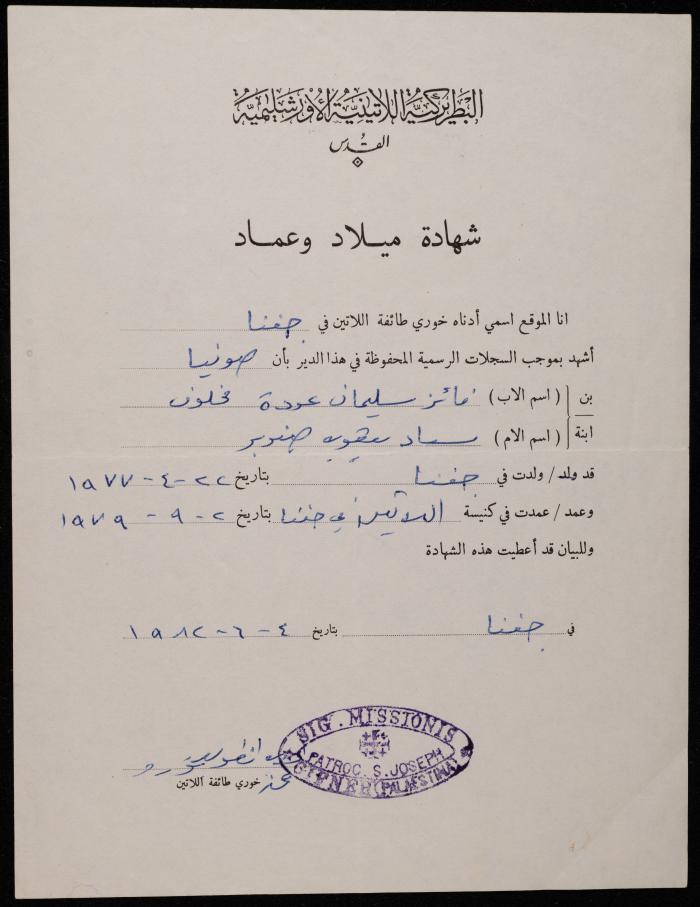 البطريركية اللاتينية الأورشليمية
القدس
شهادة ميلاد وعماد
انا الموقع اسمي أدناه خوري طائفة اللاتين في جفنا
أشهد بموجب السجلات الرسمية المحفوظة في هذا الدير بأن صونيا
بن ( اسم الاب ) فائز سليمان عودة مخلوف
ابنة ( اسم الام ) سعاد يعقوب صنوبر
قد ولد/ ولدت في جفنا بتاريخ ٢٢-٤-١٩٧٧
وعمد/ عمدت في كنيسة اللاتين في جفنا بتاريخ ٢-٩-١٩٧٩
وللبيان قد أعطيت هذه الشهادة
في جفنا بتاريخ ٤-٦-١٩٨٢
SIG. MISSIONIS
PATROC. S. JOSEPH
GIFNE (PALÆSTINA)
خوري طائفة اللاتين